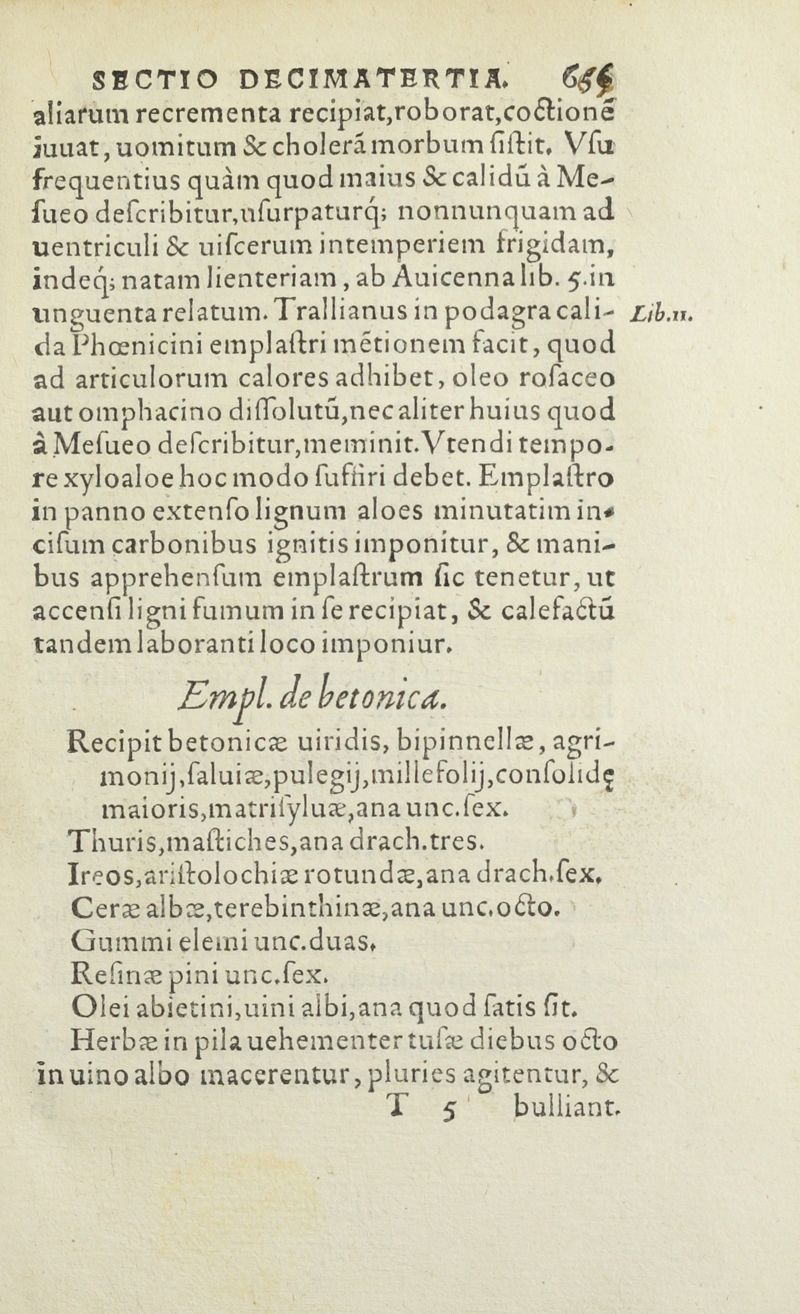 SECTIO DECIMATERTIA.
aliarum recrementa recipiat,roborat,coctionẽ
iuuat, uomitum & cholerã morbum ſiſtit. Vſu
frequentius quàm quod maius & calidũ à Me-
ſueo deſcribitur,uſurpaturq́; nonnunquam ad
uentriculi & uiſcerum intemperiem frigidam,
indeq́; natam lienteriam, ab Auicenna lib. 5.in
unguenta relatum. Trallianus in podagra cali- Lib.11.
da Phœnicini emplaſtri mẽtionem facit, quod
ad articulorum calores adhibet, oleo roſaceo
aut omphacino diſſolutũ,nec aliter huius quod
à Meſueo deſcribitur,meminit.Vtendi tempo-
re xyloaloe hoc modo ſuffiri debet. Emplaſtro
in panno extenſo lignum aloes minutatim in-
ciſum carbonibus ignitis imponitur, & mani-
bus apprehenſum emplaſtrum ſic tenetur, ut
accenſi ligni fumum in ſe recipiat, & calefactũ
tandem laboranti loco imponiur.
Empl. de betonica.
Recipit betonicæ uiridis, bipinnellæ, agri-
monij,ſaluiæ,pulegij,millefolij,conſolidę
maioris,matriſyluæ,ana unc.ſex.
Thuris,maſtiches,ana drach.tres.
Ireos,ariſtolochiæ rotundæ,ana drach.ſex.
Ceræ albæ,terebinthinæ,ana unc.octo.
Gummi elemi unc.duas.
Reſinæ pini unc.ſex.
Olei abietini,uini albi,ana quod ſatis ſit.
Herbæ in pila uehementer tuſæ diebus octo
in uino albo macerentur, pluries agitentur, &
T 5 bulliant.